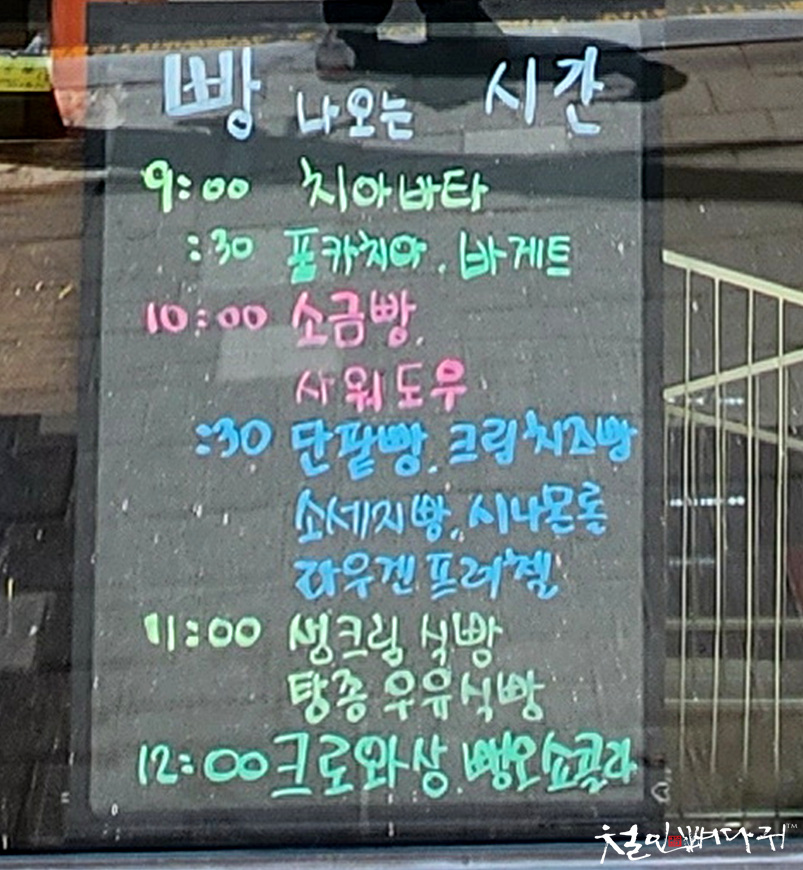 빵 나오는 시간
9:00 치아바타
:30 포카치아, 바게트
10:00 소금빵,
사워도우
:30 단팥빵, 크림치즈빵
소세지빵, 시나몬롤
라우겐프레첼
11:00 생크림 식빵
탕종 우유식빵
12:00 크로와상, 뺑오쇼콜라